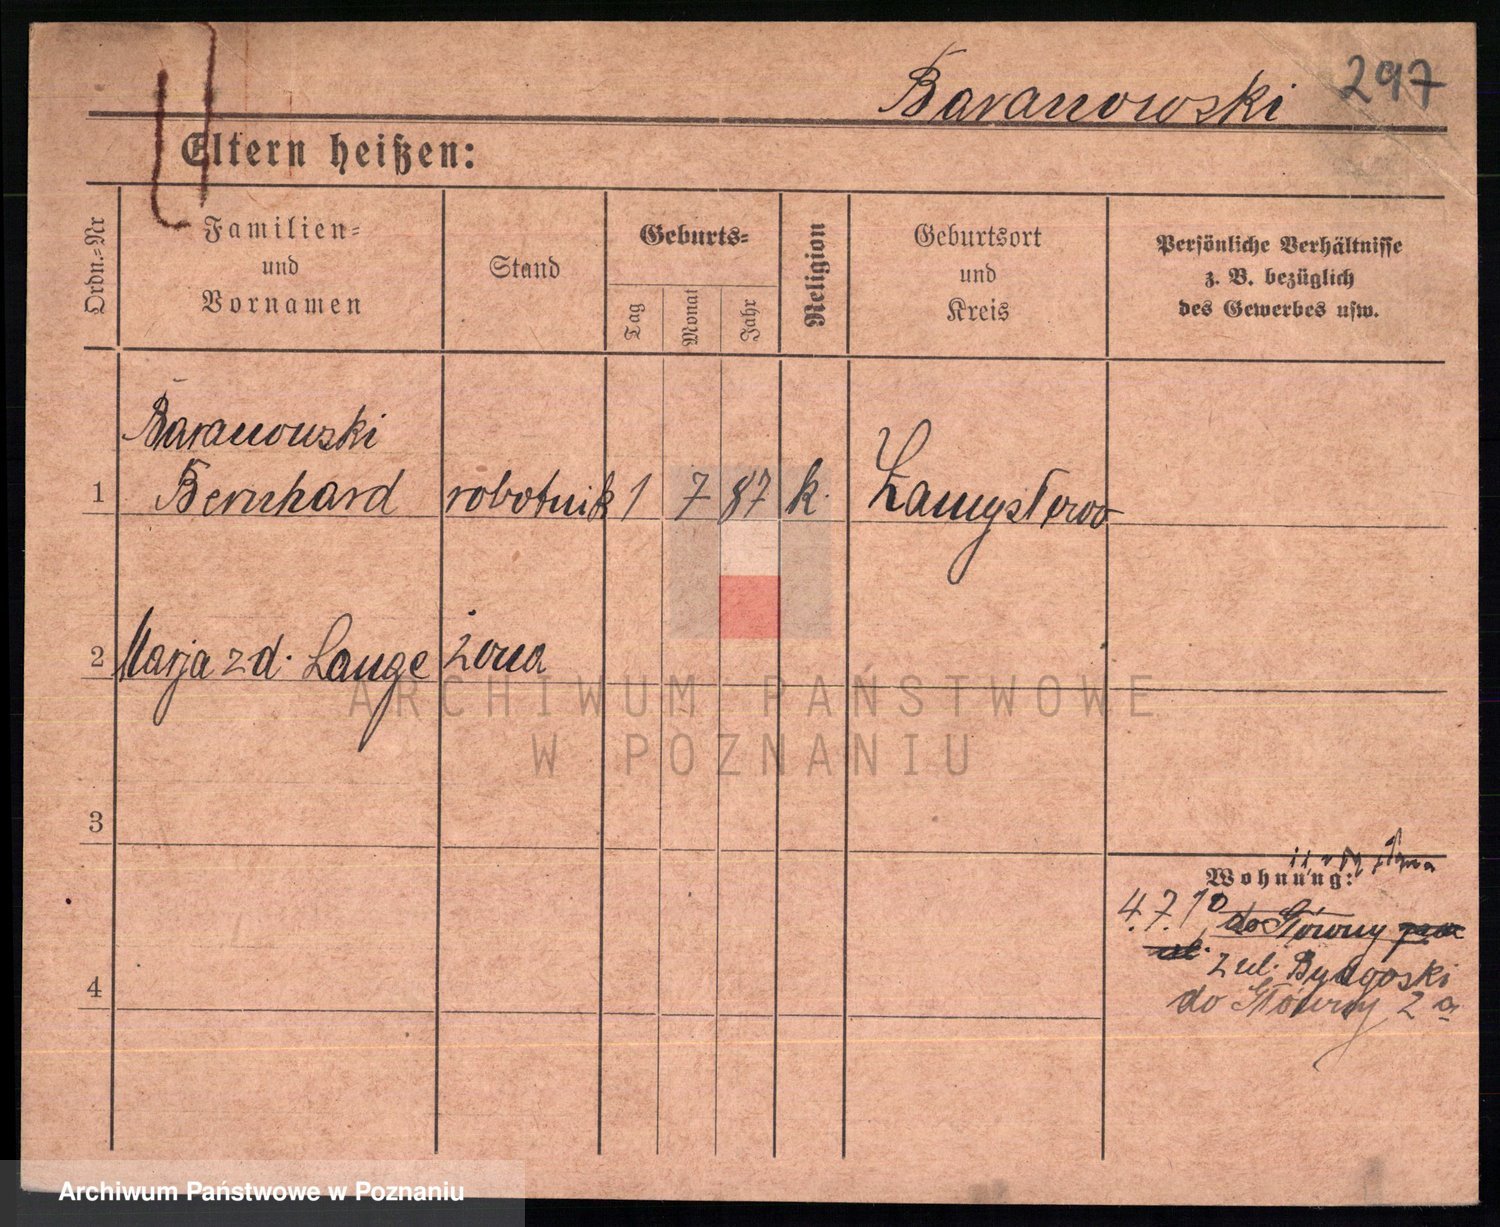 297
Baranowski
Eltern heißen:
Ordn.=Nr
Familien=
und
Vornamen
Stand
Geburts=
Tag
Monat
Jahr
Religion
Geburtsort
und
Kreis
Persönliche Verhältnisse
z. B. bezüglich
des Gewerbes usw.
Baranowski
1 Bernhard robotnik 1 7 87 k. Zamysłowo
2 Marja z d. Lange żona
ARCHIWUM PAŃSTWOWE
W POZNANIU
3
Wohnung:
4.7.
do Główny
z ul. Bydgoski
4
do Główny 2a
Archiwum Państwowe w Poznaniu